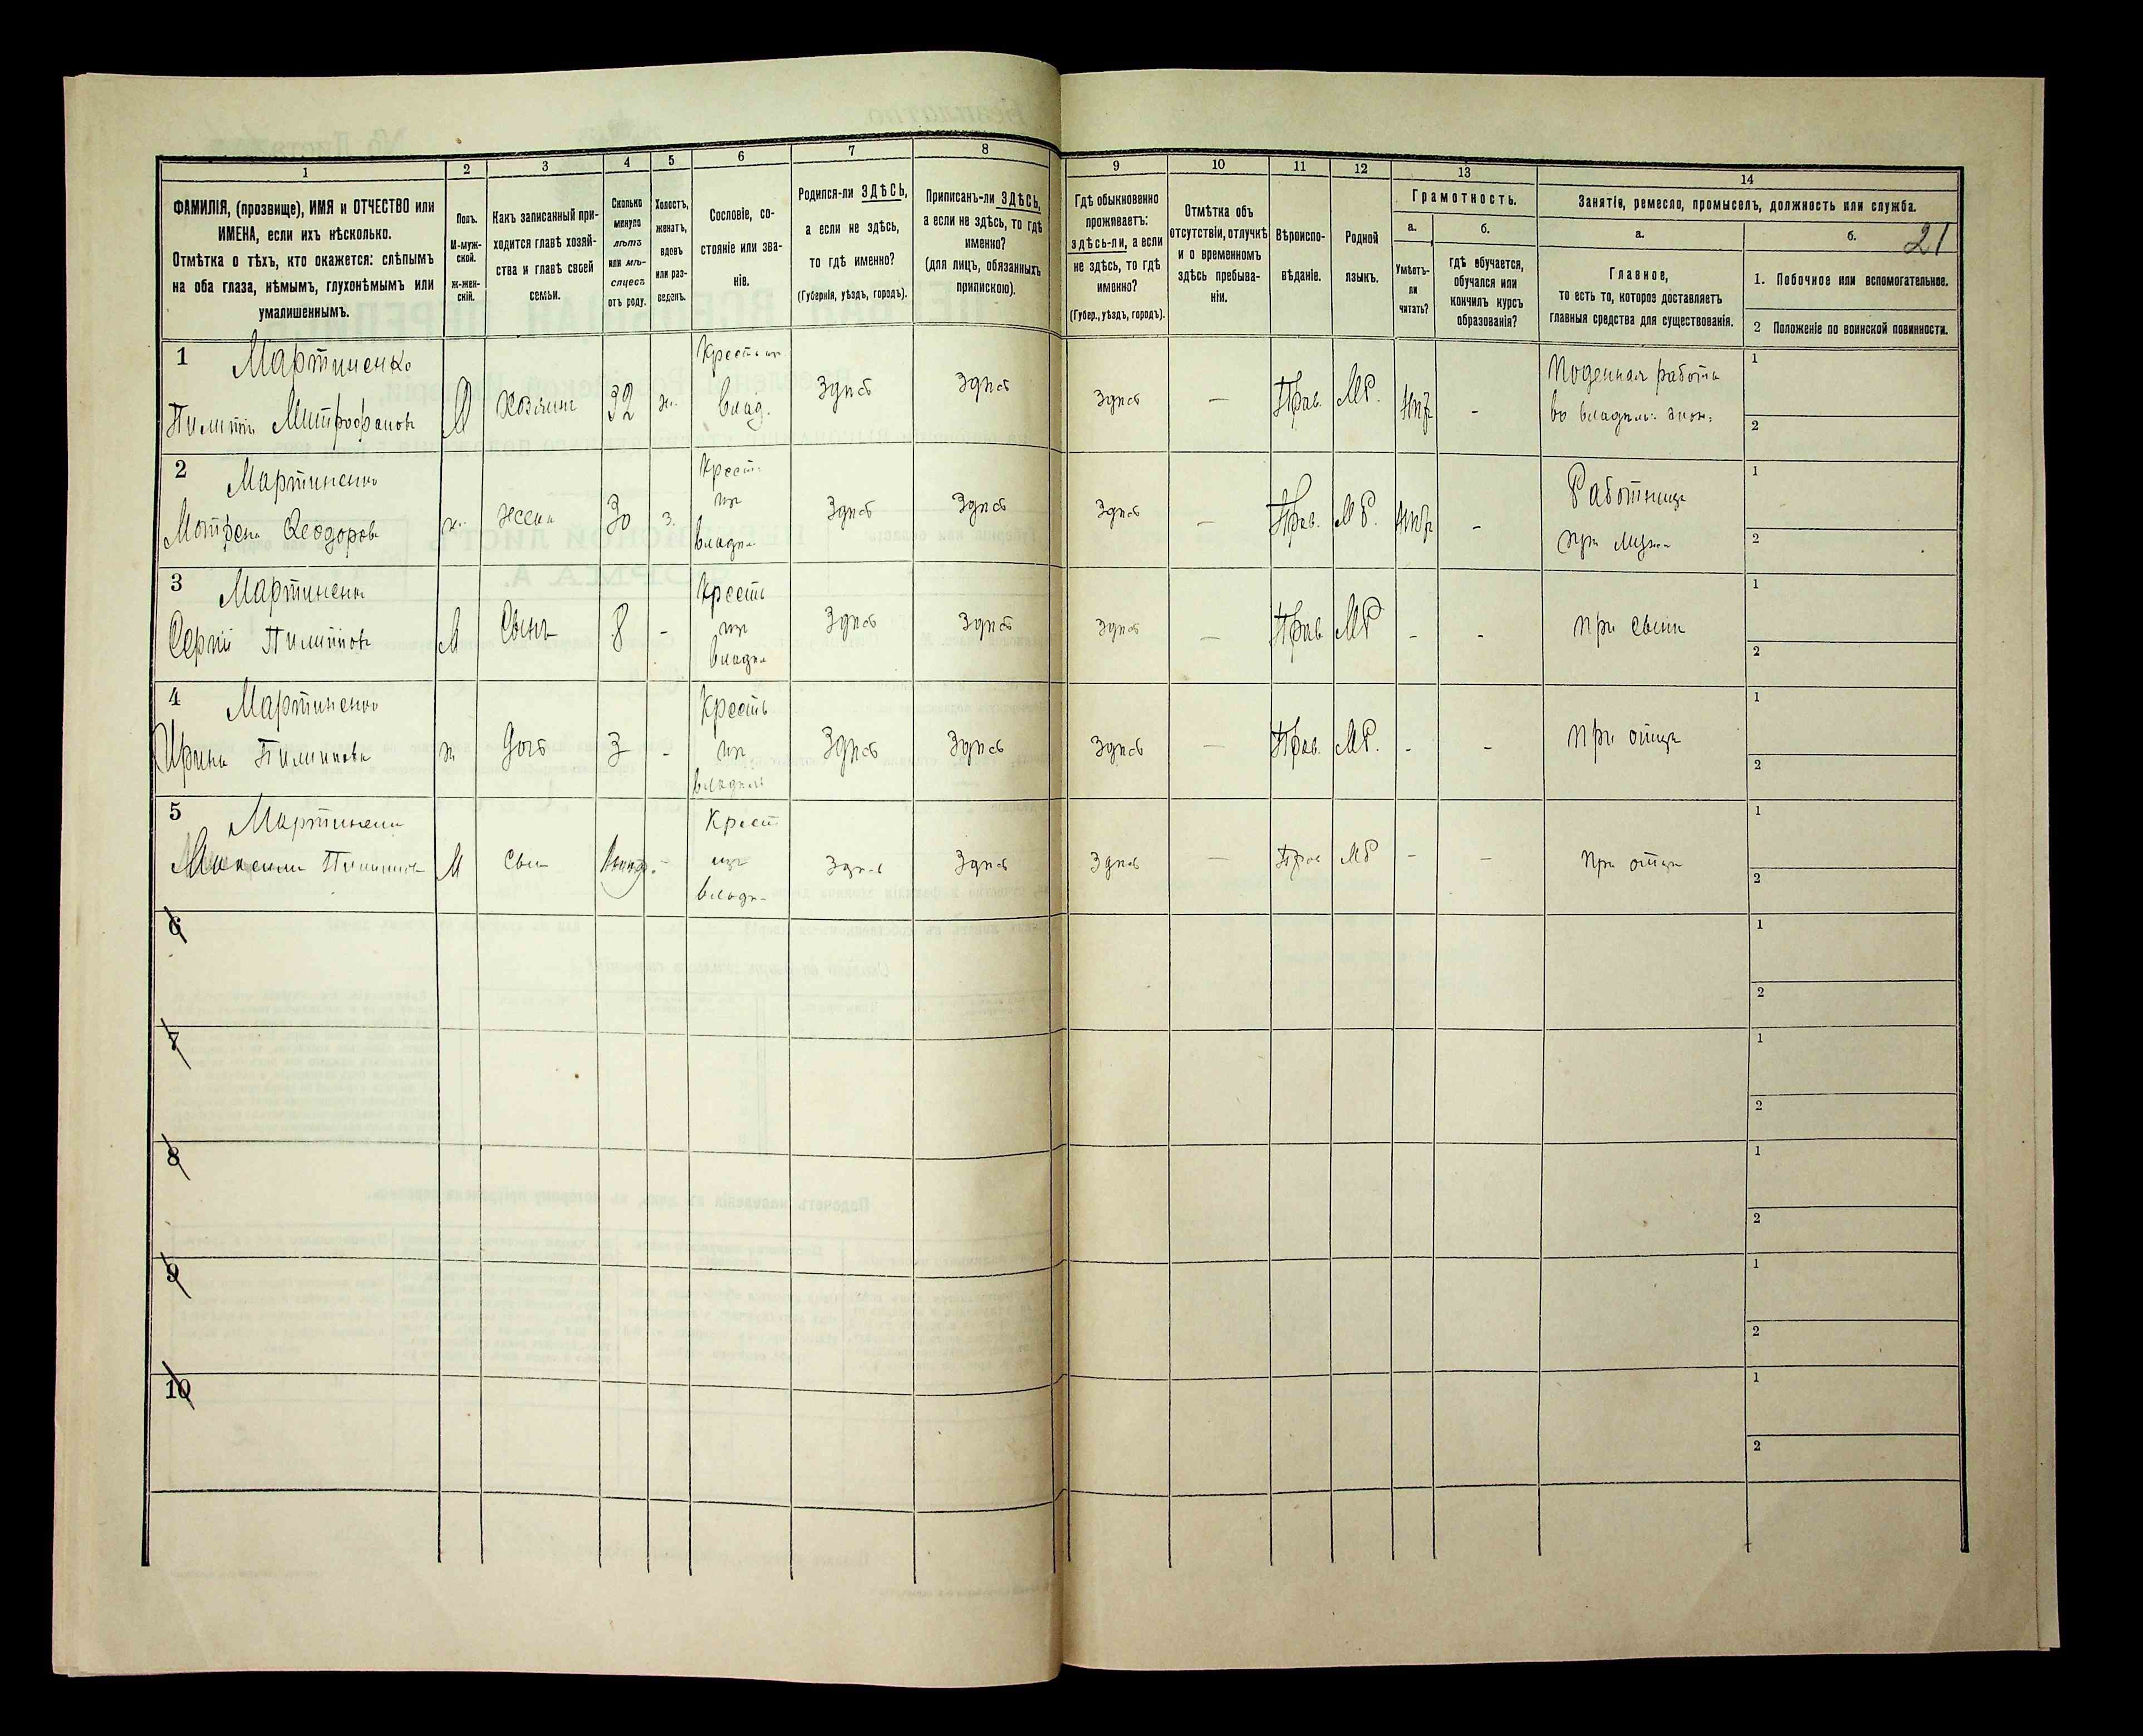 1
2
3
4
5
6
7
8
9
10
11
12
13
14
ФАМИЛІЯ, (прозвище), ИМЯ и ОТЧЕСТВО или
ИМЕНА, если ихъ нѣсколько.
Отмѣтка о тѣхъ, кто окажется: слѣпымъ
на оба глаза, нѣмымъ, глухонѣмымъ или
умалишеннымъ.
Полъ.
М-муж-
ской.
ж-жен-
скій.
Какъ записанный при-
ходится главѣ хозяй-
ства и главѣ своей
семьи.
Сколько
минуло
лѣтъ
или мѣ-
сяцевъ
отъ роду.
Холостъ,
женатъ,
вдовъ
или раз-
веденъ.
Сословіе, со-
стояніе или зва-
ніе.
Родился-ли ЗДѢСЬ,
а если не здѣсь,
то гдѣ именно?
(Губернія, уѣздъ, городъ).
Приписанъ-ли ЗДѢСЬ,
а если не здѣсь, то гдѣ
именно?
(для лицъ, обязанныхъ
припискою).
Гдѣ обыкновенно
проживаетъ:
здѣсь-ли, а если
не здѣсь, то гдѣ
именно?
(Губер., уѣздъ, городъ).
Отмѣтка объ
отсутствіи, отлучкѣ
и о временномъ
здѣсь пребыва-
ніи.
Вѣроиспо-
вѣданіе.
Родной
языкъ.
Грамотность.
а.
б.
Умѣетъ-
ли
читать?
гдѣ обучается,
обучался или
кончилъ курсъ
образованія?
Занятіе, ремесло, промыселъ, должность или служба.
21
а.
б.
Главное,
то есть то, которое доставляетъ
главныя средства для существованія.
1. Побочное или вспомогательное.
2 Положеніе по воинской повинности.
1 Мартиненко
Митрофановъ
М
Хозяинъ
32
ж.
влад.
Здѣсь
Здѣсь
Здѣсь
—
Прав.
МР.
-
Поденная работа
1
2
2 Мартиненко
Мотрена Феодорова
ж.
жена
30
з.
Крест.
изъ
Здѣсь
Здѣсь
Здѣсь
—
Прав.
МР.
-
Работница
при мужѣ
1
2
3 Мартиненко
Сергій
М
Сынъ
8
-
Крестъ
изъ
Здѣсь
Здѣсь
Здѣсь
—
Прав.
МР
-
-
1
2
4 Мартиненко
Ирина
ж
Дочь
3
-
Крестъ
изъ
Здѣсь
Здѣсь
Здѣсь
—
Прав.
МР.
-
-
при отцѣ
1
2
5 Мартиненко
М
Сын
-
Крест
изъ
Здѣсь
Здѣсь
Здѣсь
—
Прав
МР
-
-
при отцѣ
1
2
6
1
2
7
1
2
8
1
2
9
1
2
10
1
2